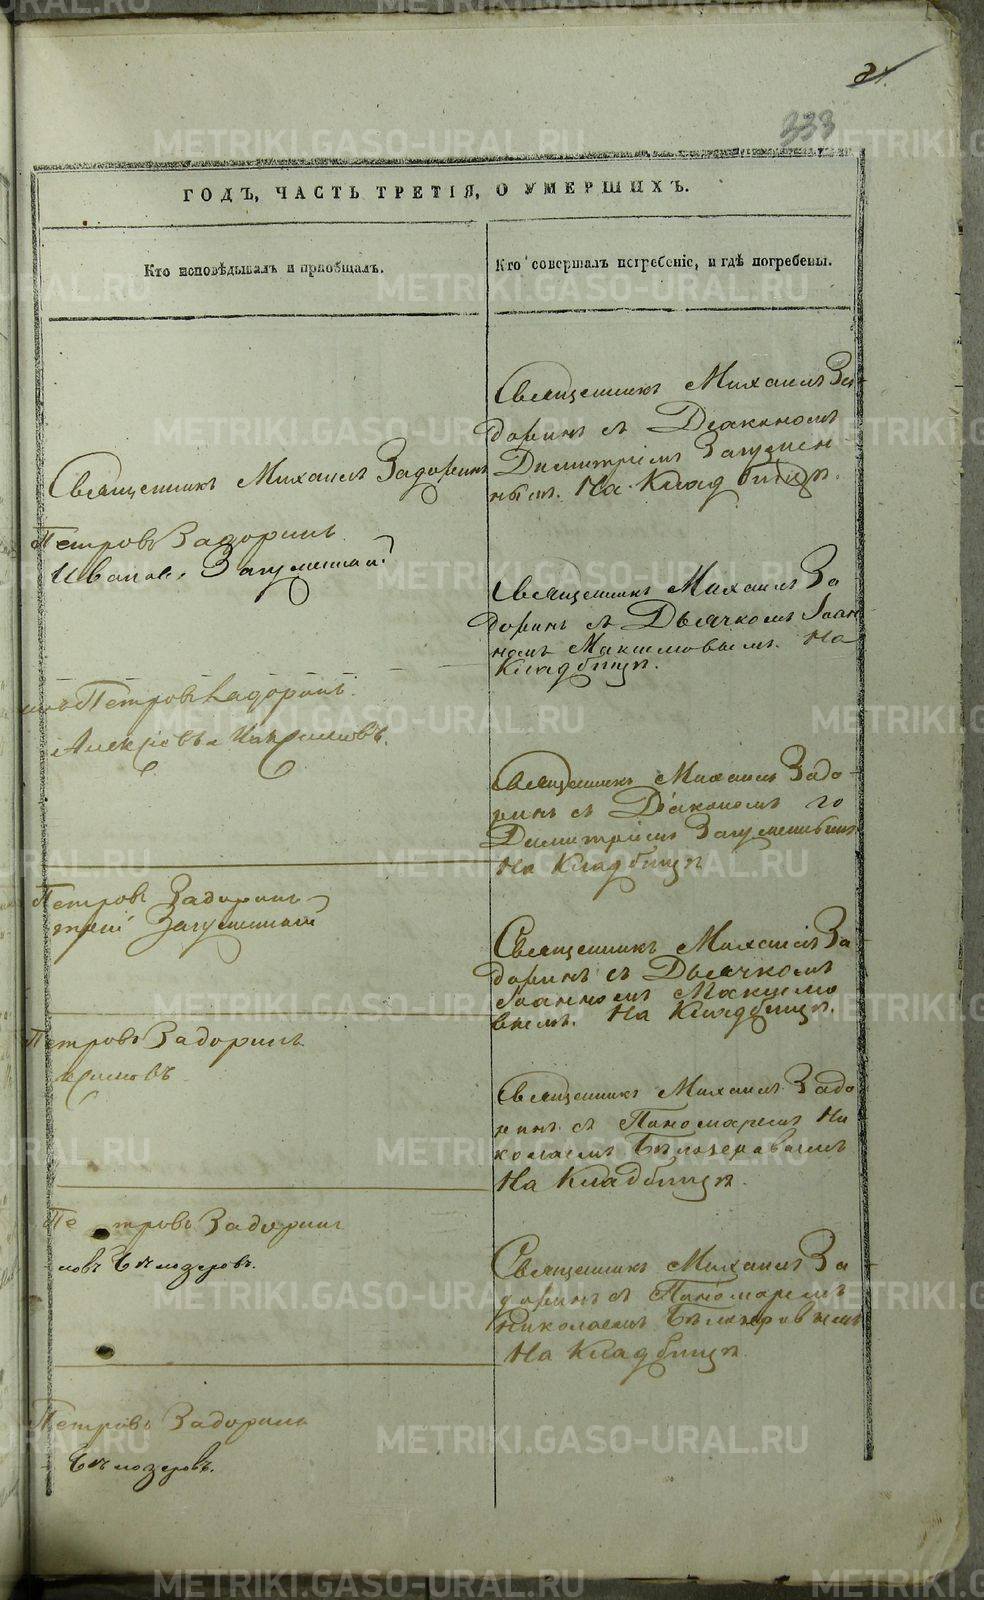 333
ГОДЪ, ЧАСТЬ ТРЕТІЯ, О УМЕРШИХЪ.
Кто исповѣдывалъ и пріобщалъ.
Кто совершалъ погребеніе, и гдѣ погребены.
Священникъ Михаилъ За-
доринъ съ Діакономъ
Димитріемъ Загумен
нымъ. На Кладбищѣ.
Священникъ Михаилъ Задоринъ
Петровъ Задоринъ
Иванов Загуменный
Священникъ Михаилъ За
доринъ съ Дьячкомъ Іоан
номъ Максимовымъ. На
Кладбищѣ.
Петровъ Задоринъ.
Алексіевъ Максимовъ.
Священникъ Михаилъ Задо-
ринъ съ Діакономъ
Димитріемъ Загуменнымъ
На Кладбищѣ
Петровъ Задоринъ
трій Загуменный
Священникъ Михаилъ За
доринъ съ Дьячкомъ
Іоанномъ Максимо
вымъ. На Кладбищѣ.
Петровъ Задоринъ
ксимовъ
Священникъ Михаилъ Задо
ринъ съ Пономаремъ Ни
колаемъ Бѣлозеровымъ
На Кладбищѣ.
Петровъ Задоринъ
Бѣлозеровъ.
Священникъ Михаилъ За
доринъ съ Пономаремъ
Николаемъ Бѣлозеровымъ
На Кладбищѣ.
Петровъ Задоринъ
Бѣлозеровъ.
METRIKI.GASO-URAL.RU